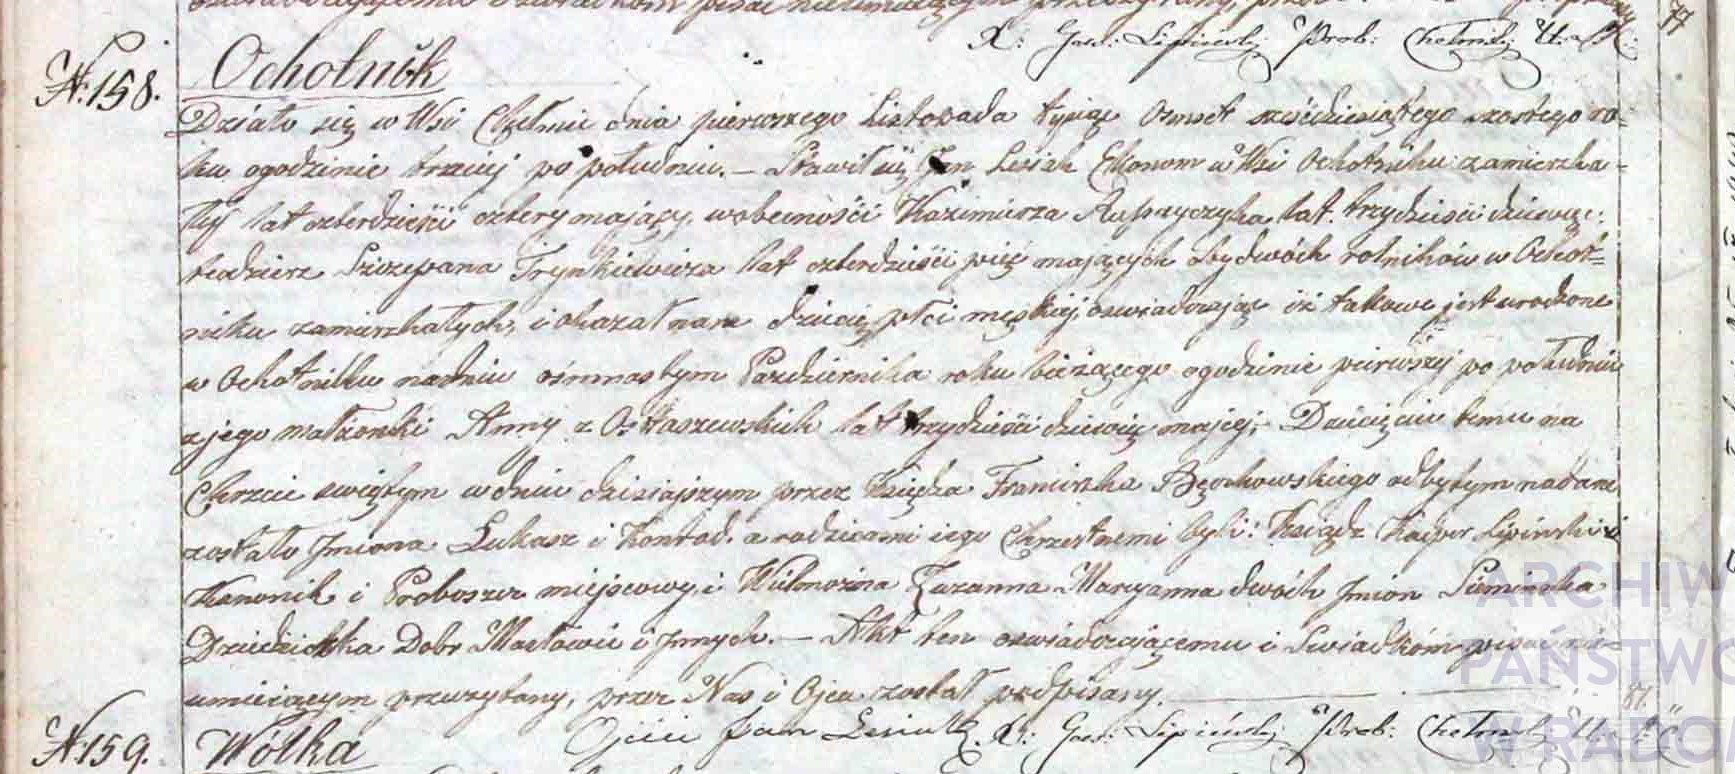 X: Gas: Lipiński Prob: Chełmski U. S. C. 77
N: 158. Ochotnik
Działo się w Wsi Chełmie dnia pierwszego Listopada tysiąc osmset sześćdziesiątego szostego ro-
ku ogodzinie trzeciej po południu. – Stawił się Jan Lesiak Ekonom w Wsi Ochotniku zamieszka-
ły lat czterdzieści cztery mający, wobecności Kazimierza lat trzydzieści dziewięc:
tudzierz Szczepana Trynkiewicza lat czterdzieści pięć mających obydwóch rolników w Ochot=
niku zamieszkałych, i okazał nam dziecię płci męskiej, oswiadczając iż takowe jest urodzone
w Ochotniku nadniu osmnastym Pazdziernika roku bieżącego ogodzinie peirwszej po południu
z jego małżonki Anny z Ostaszewskich lat trzydzieści dziewięc mającej, – Dziecięciu temu na
Chrzcie swiętym wdniu dzisiajszym przez Księdza Franciszka odbytym nadane
zostało Jmiona Łukasz i Konrad. a rodzicami iego Chrzestnemi byli: Ksiądz Kacper Lipiński
Kanonik i Proboszcz miejscowy, i Wielmożna Zuzanna Maryanna dwóch Jmion Siemeńska
Dziedziczka Dobr Masłowic i Jnnych. – Akt ten oswiadczającemu i Swiadkóm pisać nie-
umiejącym przeczytany, przez Nas i Ojca został podpisany.
Ojciec Jan Lesiak. X: Gas: Lipiński Prob: Chełmski U. S. C. 81.
N: 159. Wólka
ARCHIW
PAŃSTWO
W RADOM